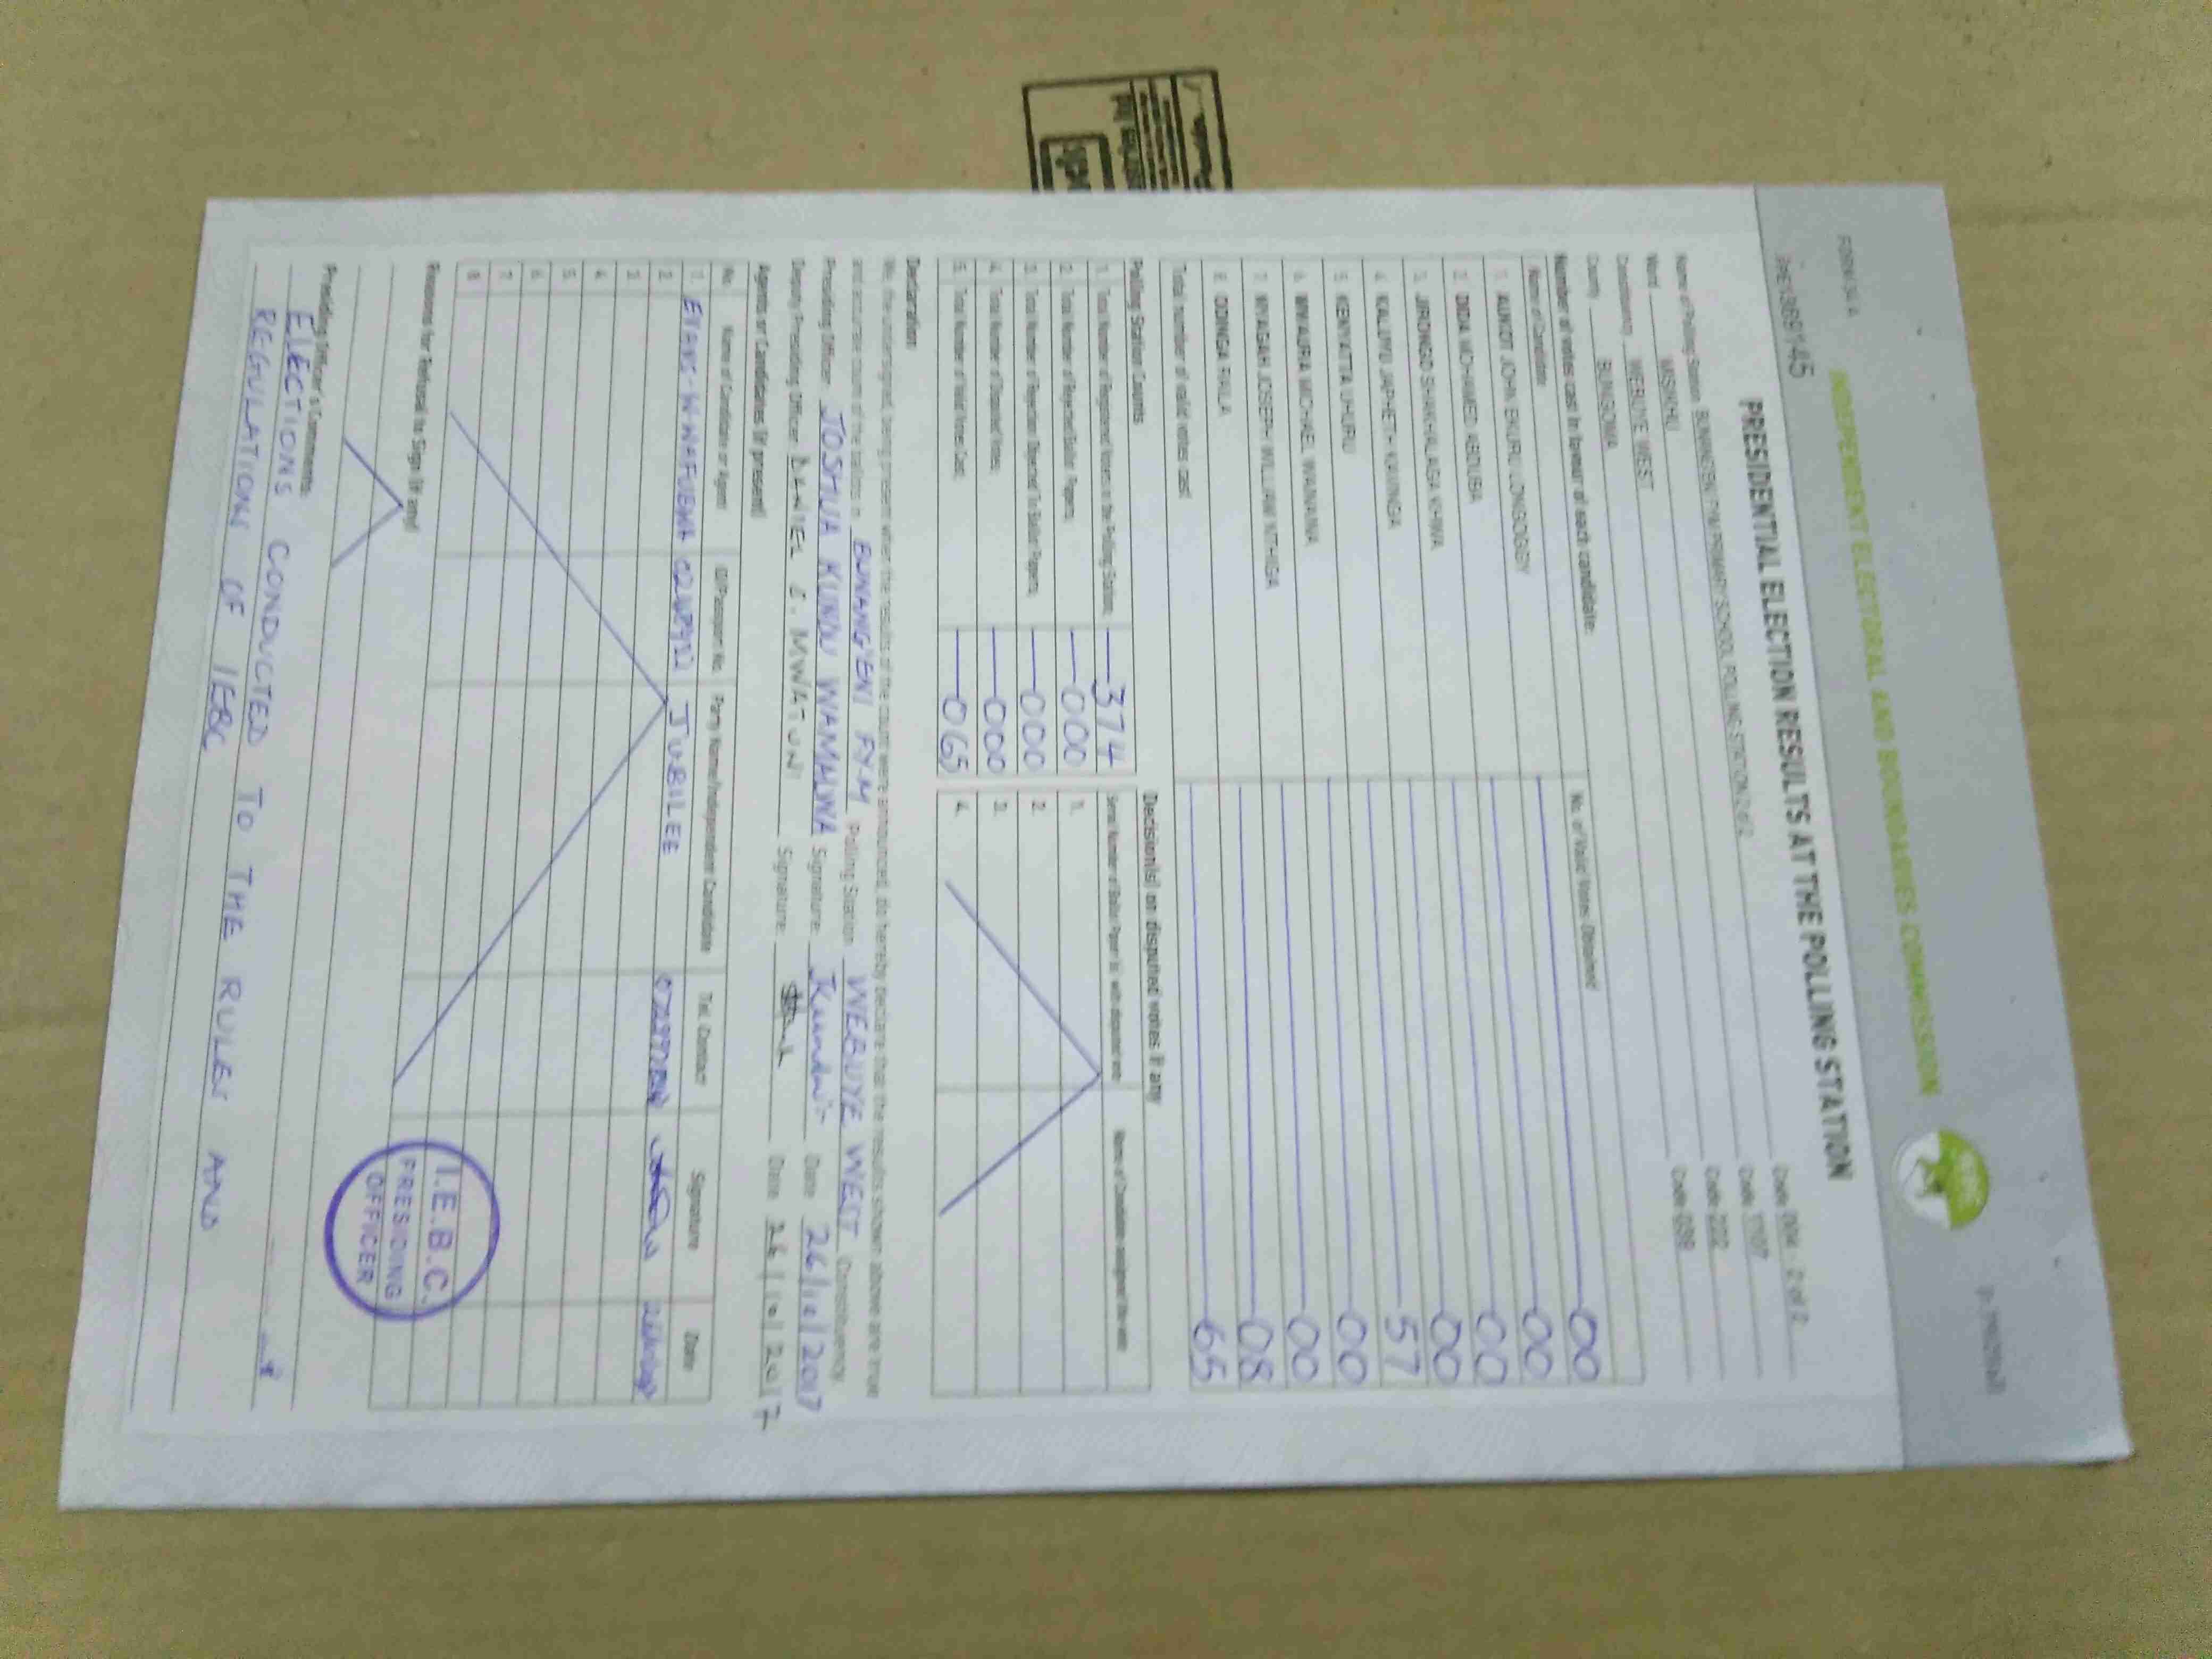 FORM 34 A
INDEPENDENT ELECTORAL AND BOUNDARIES COMMISSION
PRESIDENTIAL ELECTION RESULTS AT THE POLLING STATION
Name of Polling Station PRIMARY SCHOOL POLLING STATION 2 of 2 Code 2 of 2
Ward MISIKHU Code 1107
Constituency WEBUYE WEST Code 222
County BUNGOMA Code 039
Number of votes cast in favour of each candidate:
Name of Candidate No. of Valid Votes Obtained
1. AUKOT JOHN EKURU LONGOGGY 00
2. DIDA MOHAMED ABDUBA 00
3. JIRONGO SHAKHALAGA KHWA 00
4. KALUYU JAPHETH KAVINGA 00
5. KENYATTA UHURU 57
6. MWAURA MICHAEL WAINAINA 00
7. NYAGAH JOSEPH WILLIAM NTHIGA 00
8. ODINGA RAILA 08
Total number of valid votes cast 65
Polling Station Counts
1. Total Number of Registered Voters in the Polling Station 374
2. Total Number of Rejected Ballot Papers 000
3. Total Number of Rejection Objected To Ballot Papers 000
4. Total Number of Disputed Votes 000
5. Total Number of Valid Votes Cast 065
Decision(s) on disputed votes if any
1.
2.
3.
4.
Declaration
We, the undersigned, being present when the results of the count were announced, do hereby declare that the results shown above are true
and accurate count of the ballots in BUNANG'ENI FYM Polling Station WEBUYE WEST Constituency.
Presiding Officer JOSHUA KUNDU WAMALWA Signature Date 26/10/2017
Deputy Presiding Officer Signature Date 26/10/2017
Agents or Candidates (if present)
No. Name of Candidate or Agent ID/Passport No. Party Name/Independent Candidate Tel. Contact Signature Date
1. EVANS W WAFUBWA JUBILEE
2.
3.
4.
5.
6.
7.
8.
Reasons for Refusal to Sign (if any)
Presiding Officer's Comments:
ELECTIONS CONDUCTED TO THE RULES AND
REGULATION OF IEBC
I.E.B.C.
PRESIDING
OFFICER